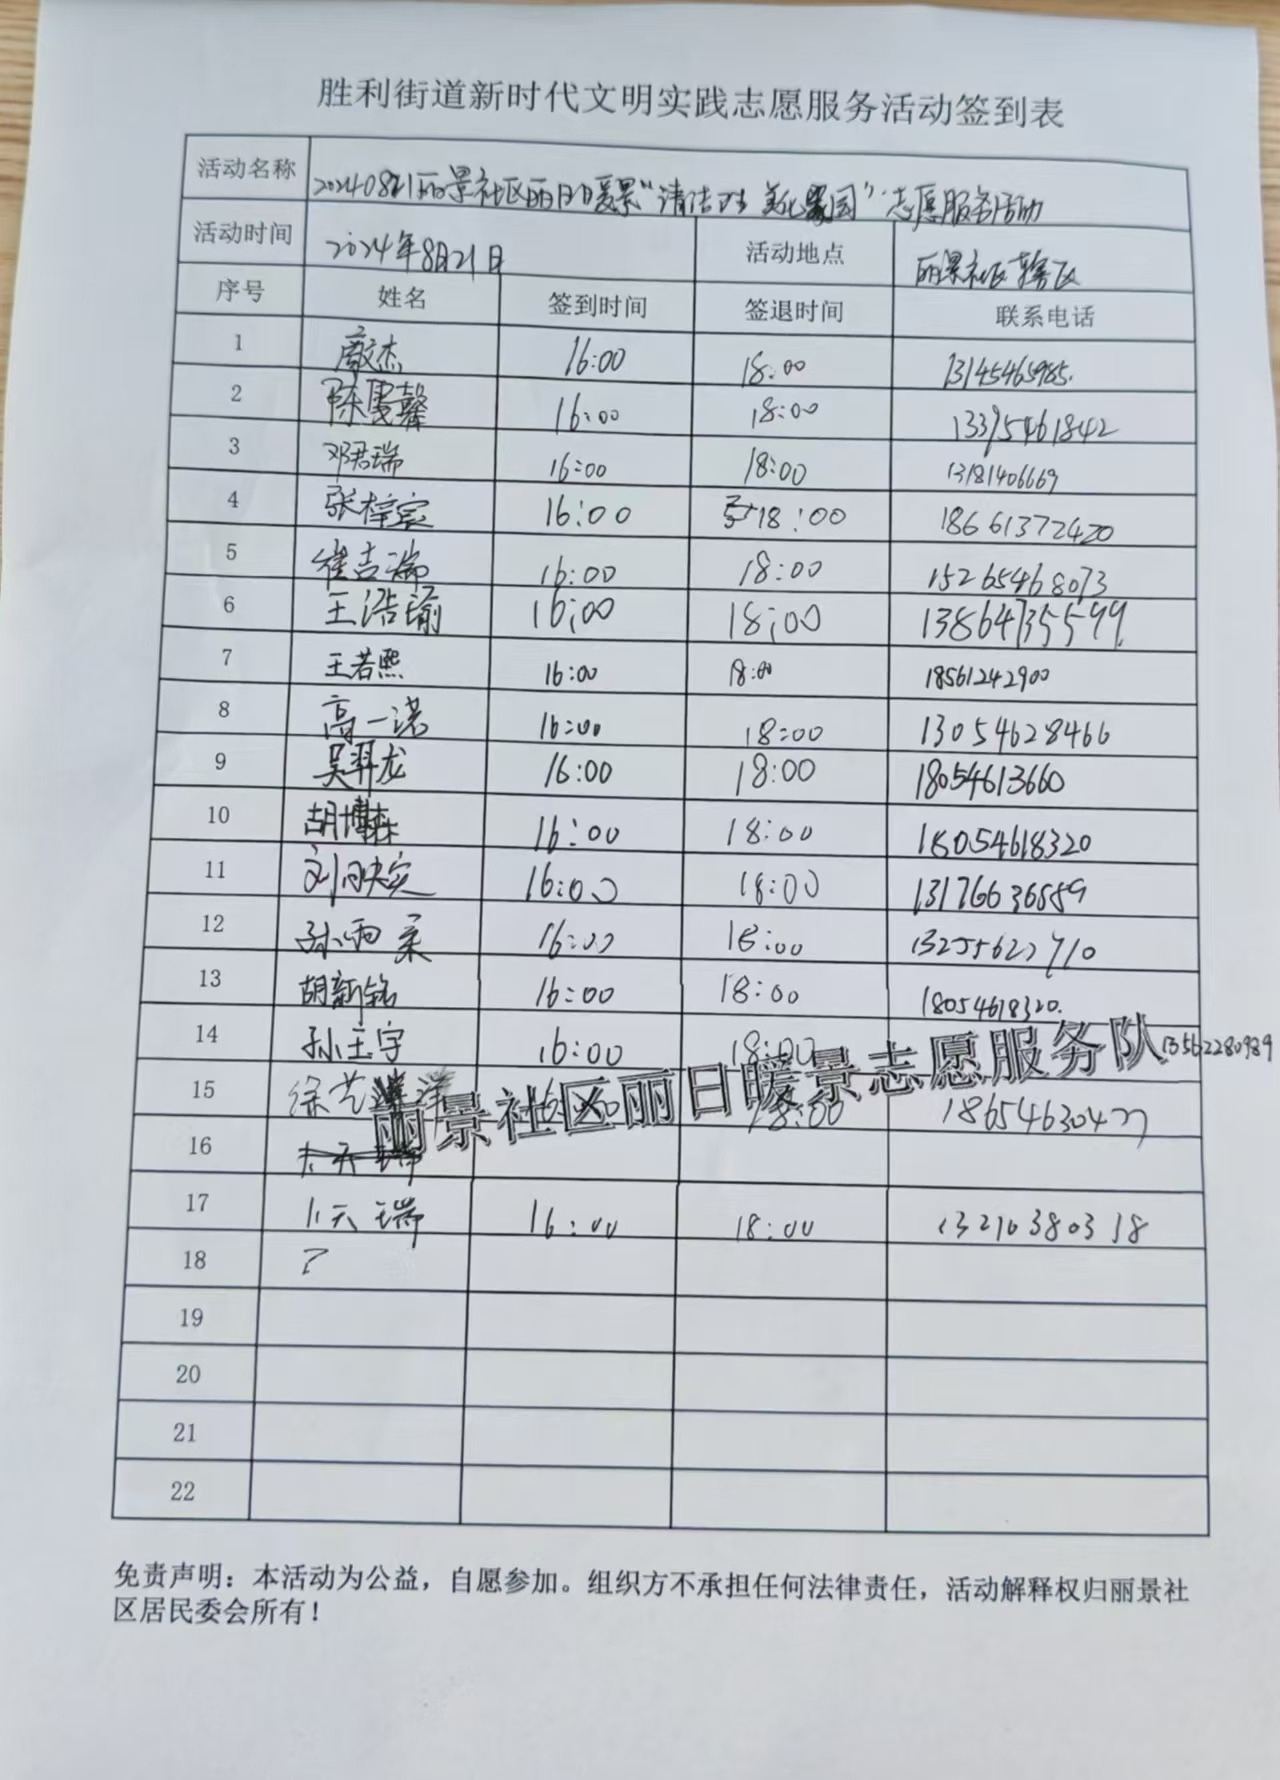 胜利街道新时代文明实践志愿服务活动签到表
活动名称 20240821丽景社区丽日暖景“清洁 美化家园”志愿服务活动
活动时间 2024年8月21日 活动地点 丽景社区辖区
序号 姓名 签到时间 签退时间 联系电话
1 16:00 18:00 13145465985.
2 陈雯馨 16:00 18:00 13395461842
3 邓君瑞 16:00 18:00 13181406669
4 张梓宸 16:00 18:00 18661372420
5 崔吉瑞 16:00 18:00 15265468073
6 王浩瑜 16:00 18:00 13864735599
7 王若熙 16:00 18:00 18561242900
8 高一诺 16:00 18:00 13054628466
9 吴羿龙 16:00 18:00 18054613660
10 胡博森 16:00 18:00 18054618320
11 16:00 18:00 13176636889
12 孙雨柔 16:00 18:00
13 胡新铭 16:00 18:00 18054618320.
14 孙玉宇 16:00 18:00 13562280989
丽景社区丽日暖景志愿服务队
15 徐艺洋 18:00
16
17 天瑞 16:00 18:00 13210380318
18
19
20
21
22
免责声明：本活动为公益，自愿参加。组织方不承担任何法律责任，活动解释权归丽景社
区居民委会所有！